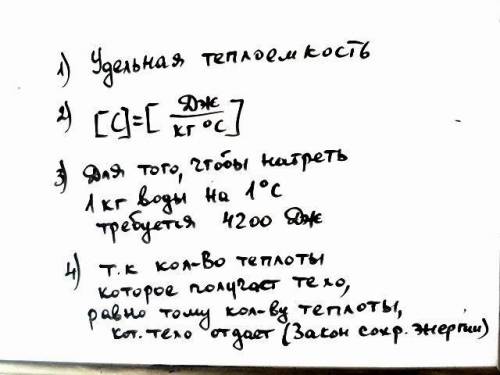 1) Удельная теплоемкость
2) [C]=[Дж/кг°C]
3) Для того, чтобы нагреть
1 кг воды на 1°C
требуется 4200 Дж
4) т.к кол-во теплоты
которое получает тело,
равно тому кол-ву теплоты,
кот. тело отдает (Закон сохр. энергии)